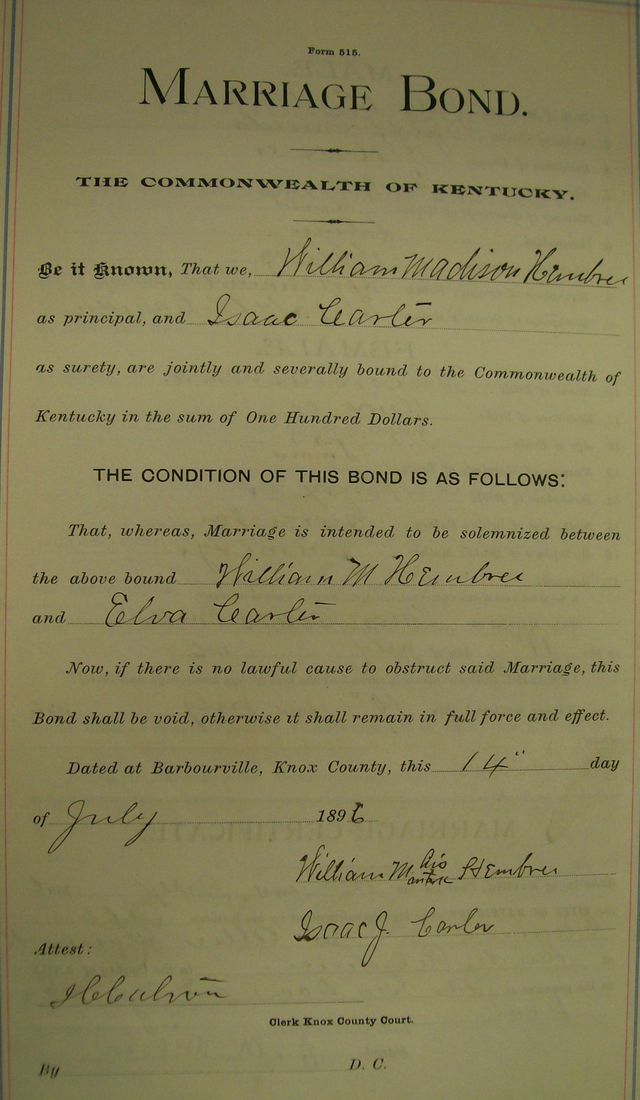 Form 515.
MARRIAGE BOND.
THE COMMONWEALTH OF KENTUCKY.
Be it Known, That we, William Madison Hembree
as principal, and Isaac Carter
as surety, are jointly and severally bound to the Commonwealth of
Kentucky in the sum of One Hundred Dollars.
THE CONDITION OF THIS BOND IS AS FOLLOWS:
That, whereas, Marriage is intended to be solemnized between
the above bound William M Hembree
and Elva Carter
Now, if there is no lawful cause to obstruct said Marriage, this
Bond shall be void, otherwise it shall remain in full force and effect.
Dated at Barbourville, Knox County, this 14" day
of July 1896
William M his mark Hembree
Isaac J. Carter
Attest:
Clerk Knox County Court.
By D. C.